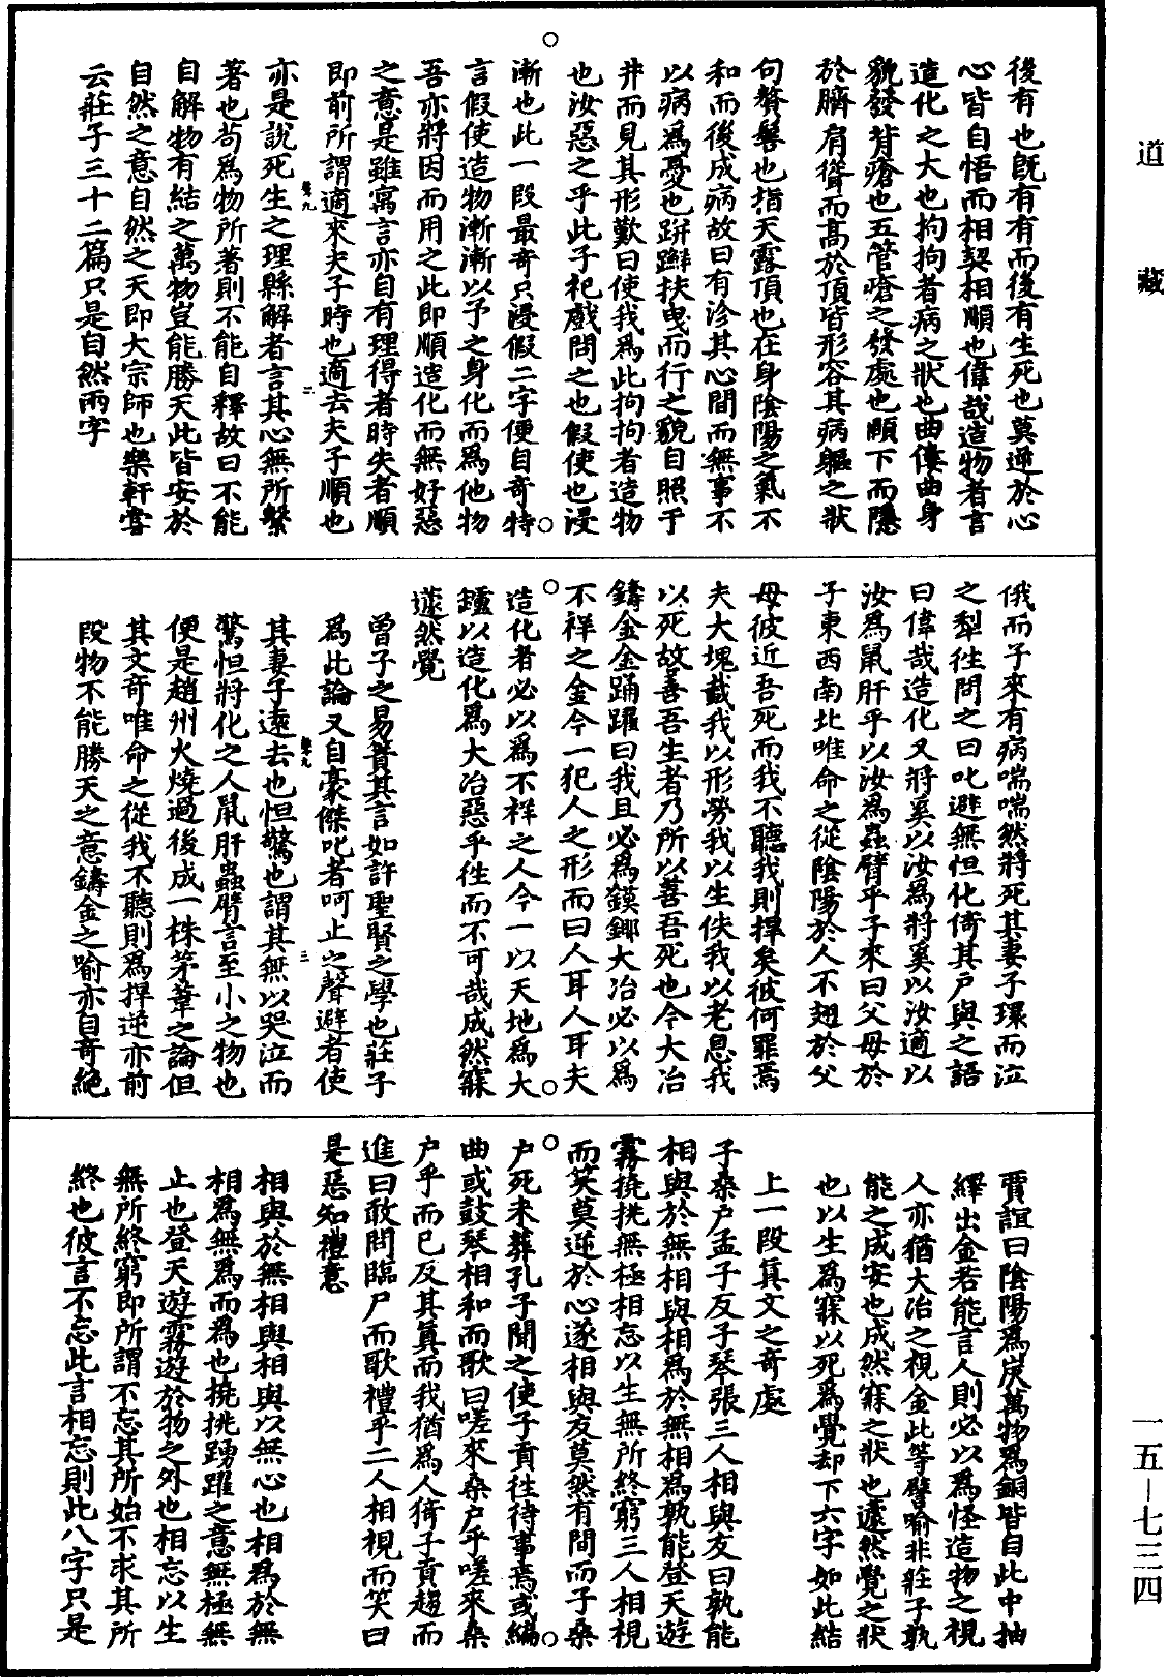 道藏
後有也既有有而後有生死也莫逆於心
心皆自悟而相契相順也偉哉造物者言
造化之大也拘拘者病之狀也曲僂曲身
貌發背瘡也五管瘡之發處也頤下而隱
於臍肩聳而髙於頂皆形容其病軀之狀
句贅髻也指天露頂也在身陰陽之氣不
和而後成病故曰有沴其心間而無事不
以病為憂也跰𨇤扶曳而行之貌自照于
井而見其形歎曰使我為此拘拘者造物
也汝惡之乎此子祀戲問之也假使也浸
漸也此一段最竒只浸假二字便自竒特
言假使造物漸漸以予之身化而為他物
吾亦將因而用之此即順造化而無好惡
之意是雖寓言亦自有理得者時失者順
即前所謂適來夫子時也適去夫子順也
亦是說死生之理縣解者言其心無所繫
著也苟為物所著則不能自釋故曰不能
自解物有結之萬物豈能勝天此皆安於
自然之意自然之天即大宗師也樂軒嘗
云莊子三十二篇只是自然兩字
俄而子來有病喘喘然將死其妻子環而泣
之犁往問之曰叱避無怛化倚其户與之語
曰偉哉造化又將奚以汝為將奚以汝適以
汝為鼠肝乎以汝為蟲臂乎子來曰父母於
子東西南北唯命之從陰陽於人不翅於父
母彼近吾死而我不聽我則捍矣彼何罪焉
夫大塊載我以形勞我以生佚我以老息我
以死故善吾生者乃所以善吾死也今大冶
鑄金金踊躍曰我且必為鏌鎁大冶必以為
不祥之金今一犯人之形而曰人耳人耳夫
造化者必以為不祥之人今一以天地為大
鑪以造化為大冶惡乎往而不可哉成然寐
蘧然覺
曾子之易簀其言如許聖賢之學也莊子
為此論又自豪傑叱者呵止之聲避者使
其妻子遠去也怛驚也謂其無以哭泣而
驚怛將化之人鼠肝蟲臂言至小之物也
便是趙州火燒過後成一株茅葦之論但
其文竒唯命之從我不聽則為捍逆亦前
段物不能勝天之意鑄金之喻亦自竒絕
賈誼曰陰陽為炭萬物為銅皆自此中抽
繹出金若能言人則必以為怪造物之視
人亦猶大冶之視金此等譬喻非莊子孰
能之成安也成然寐之狀也蘧然覺之狀
也以生為寐以死為覺却下六字如此結
上一段真文之竒處
子桑户孟子反子琴張三人相與友曰孰能
相與於無相與相為於無相為孰能登天遊
霧撓挑無極相忘以生無所終窮三人相視
而笑莫逆於心遂相與友莫然有間而子桑
户死未葬孔子聞之使子貢往待事焉或編
曲或鼓琴相和而歌曰嗟來桑户乎嗟來桑
户乎而已反其真而我猶為人猗子貢趨而
進曰敢問臨尸而歌禮乎二人相視而笑曰
是惡知禮意
相與於無相與相與以無心也相為於無
相為無為而為也撓挑踴躍之意無極無
止也登天遊霧遊於物之外也相忘以生
無所終窮即所謂不忘其所始不求其所
終也彼言不忘此言相忘則此八字只是
一五－七三四